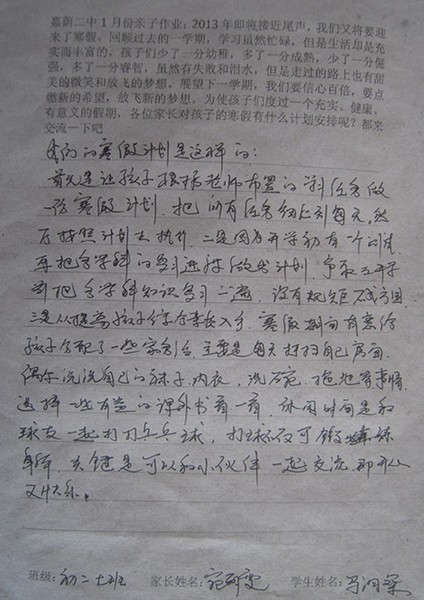 嘉荫二中1月份亲子作业：2013年即将接近尾声，我们又将要迎
来了寒假。回顾过去的一学期，学习虽然忙碌，但是生活却是充
实而丰富的，孩子们少了一分幼稚，多了一分成熟，少了一分倔
强，多了一分睿智，虽然有失败和泪水，但是走过的路上也有甜
美的微笑和放飞的梦想。展望下一学期，我们要信心百倍，要点
燃新的希望，放飞新的梦想。为使孩子们度过一个充实、健康、
有意义的假期，各位家长对孩子的寒假有什么计划安排呢？都来
交流一下吧
我们的寒假计划是这样的：
首先是让孩子根据老师布置的学科任务做
一份寒假计划，把所有任务细化到每天，然
后按照计划去执行。二是因为开学初有一个测试，
再把各学科的复习进行做出计划，争取在开学
前把各学科知识复习一遍，没有规矩不成方圆。
三是从提高孩子综合素质入手，寒假期间有意给
孩子分配了一些家务活，主要是每天打扫自己房间，
偶尔洗洗自己的袜子、内衣，洗碗，拖地等事情，
选择一些有益的课外书看一看，休闲时间是和
球友一起打打乒乓球，打球不仅可锻炼
身体，关键是可以和小伙伴一起交流，即开心
又快乐。
班级：初二七班 家长姓名： 学生姓名：